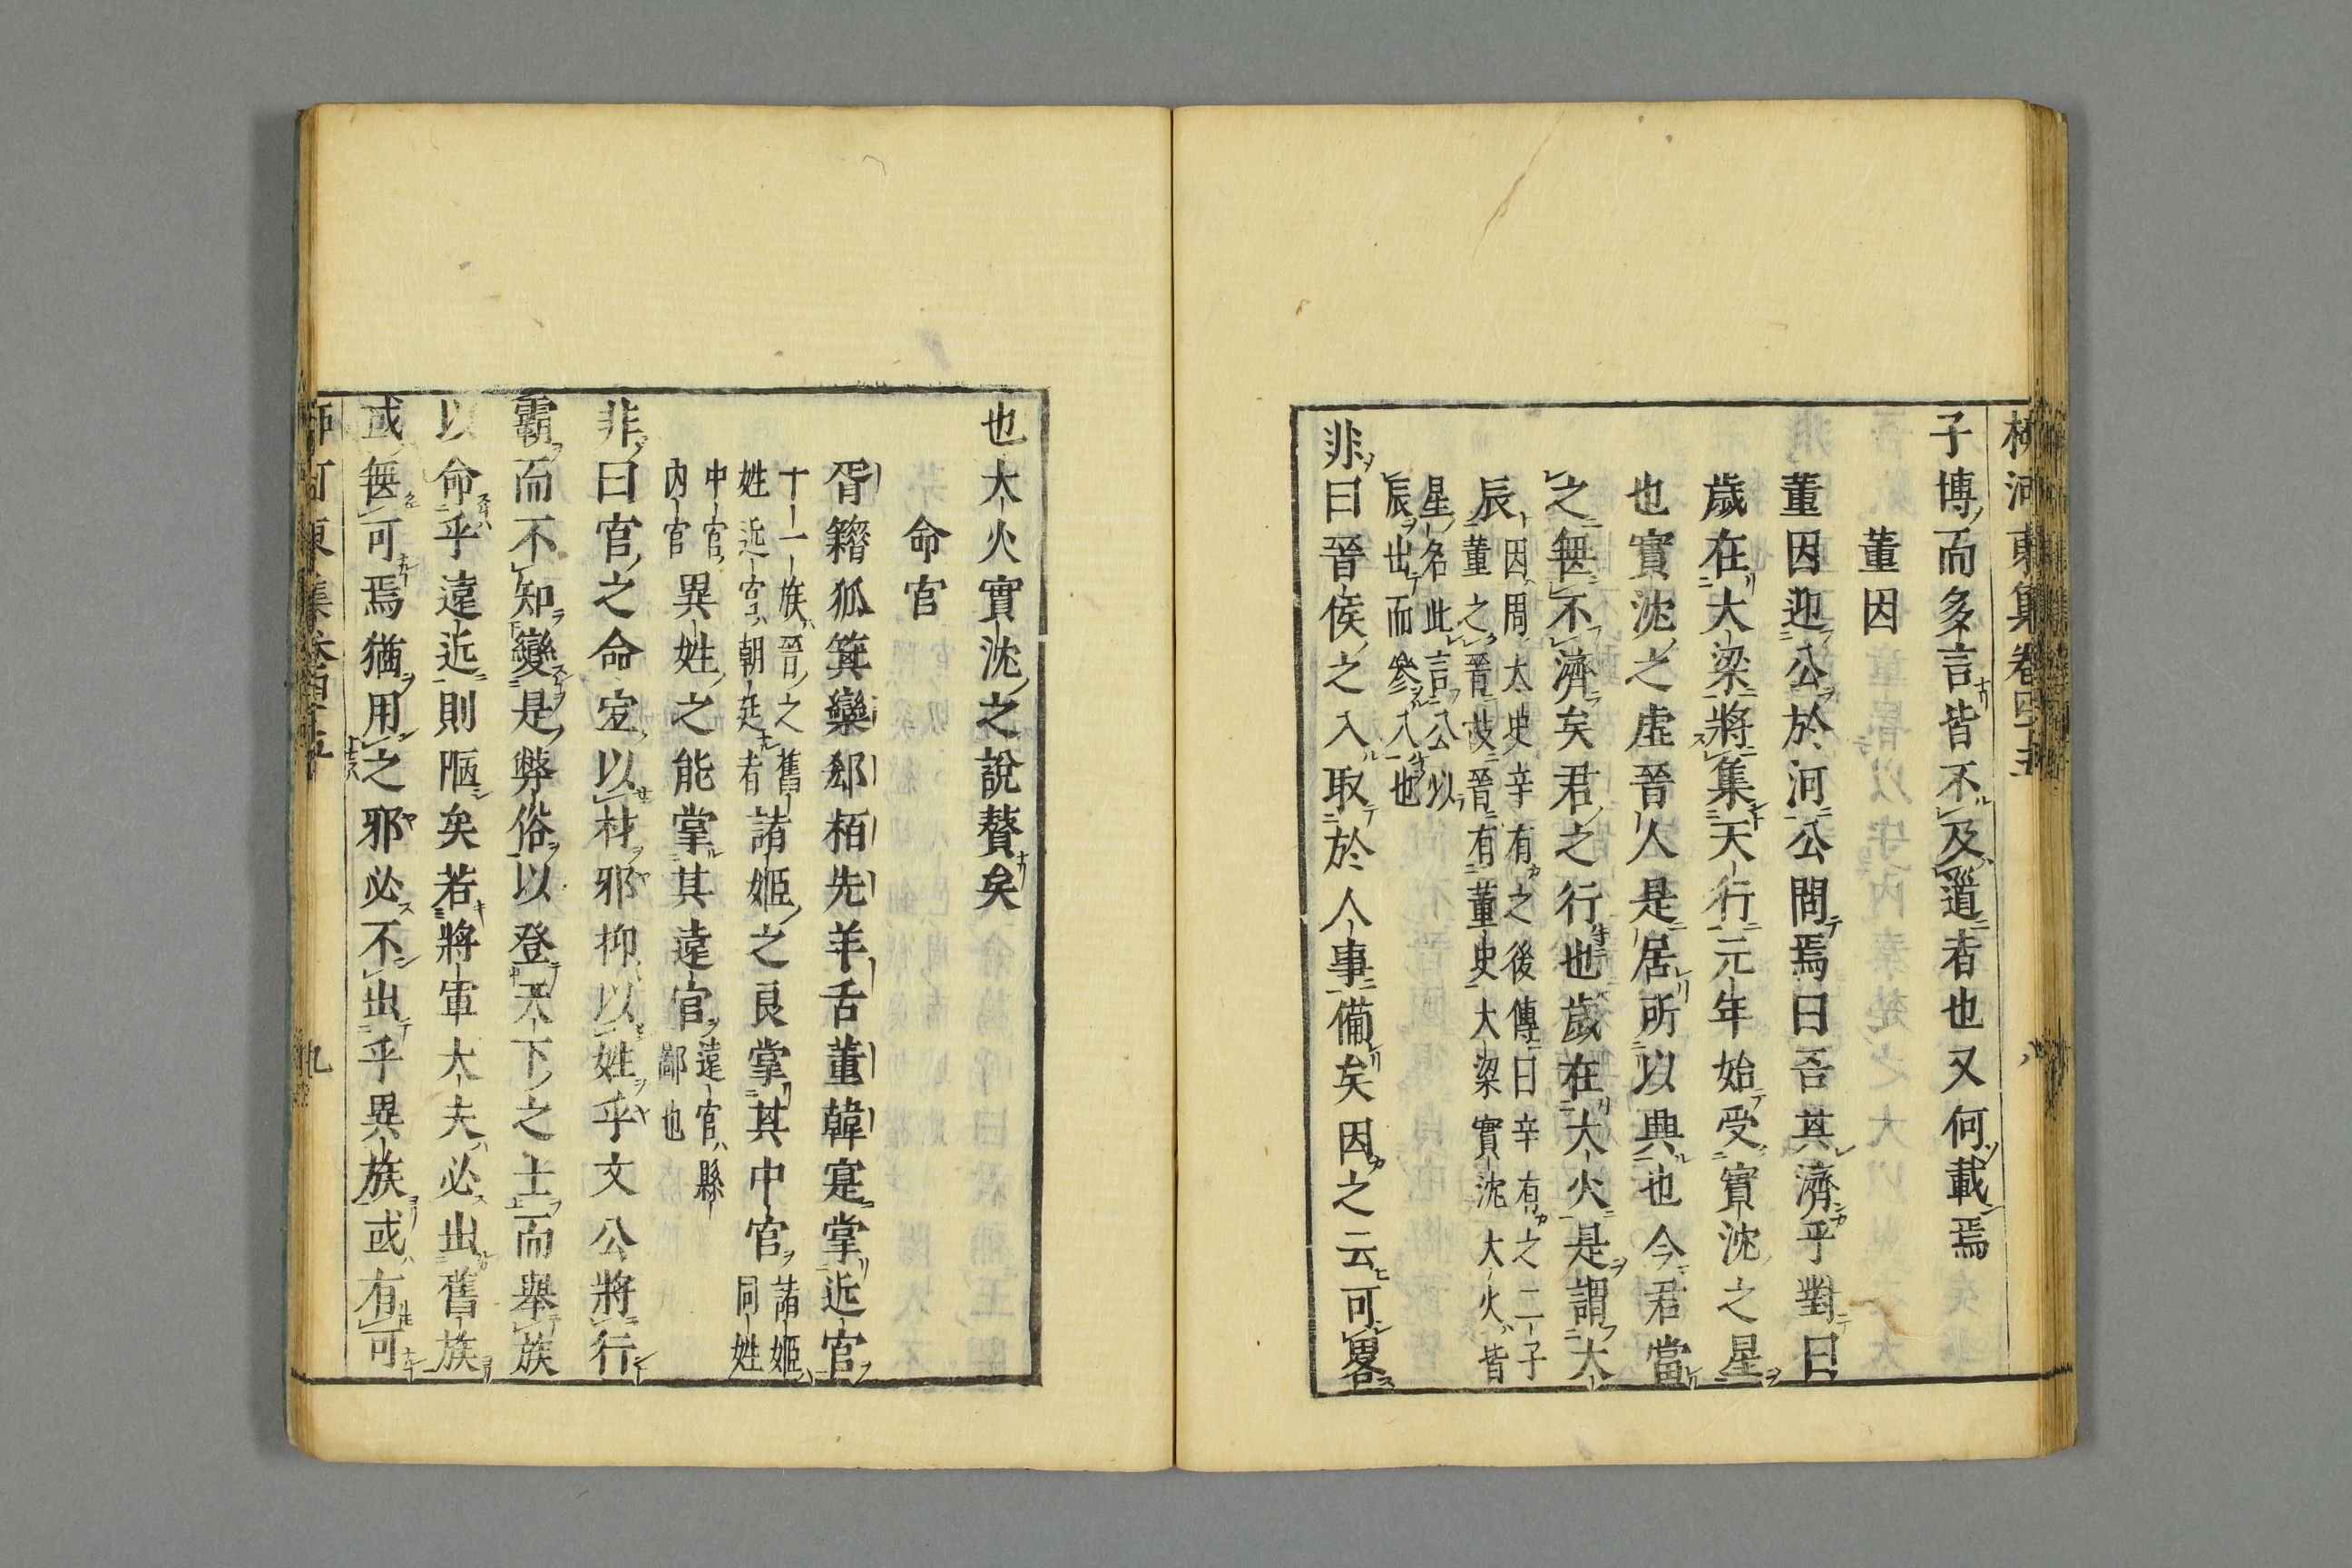 柳河東集卷四十五
子博而多言皆不及道者也又何載焉
董因
董因迎公於河公問焉曰吾其濟乎對曰
歲在大梁將集天行元年始受實沈之星
也實沈之虛晉人是居所以興也今君當
之無不濟矣君之行也歲在大火是謂大
辰因周太史辛有之後傳曰辛有之二子
董之晉茲晉有董史大梁實沈大火皆
星名此言公以
辰出而參入也
非曰晉侯之入取於人事備矣因之云可畧
也大火實沈之說贅矣
命官
胥籍狐箕欒郤栢先羊舌董韓寔掌近官
十一族晉之舊
姓近官朝廷者諸姬之良掌其中官諸姬同姓
中官
內官異姓之能掌其遠官遠官縣鄙也
非曰官之命宜以材邪抑以姓乎文公將行
霸而不知變是弊俗以登天下之士而舉族
以命乎遠近則陋矣若將軍大夫必出舊族
或無可焉猶用之邪必不出乎異族或有可
九